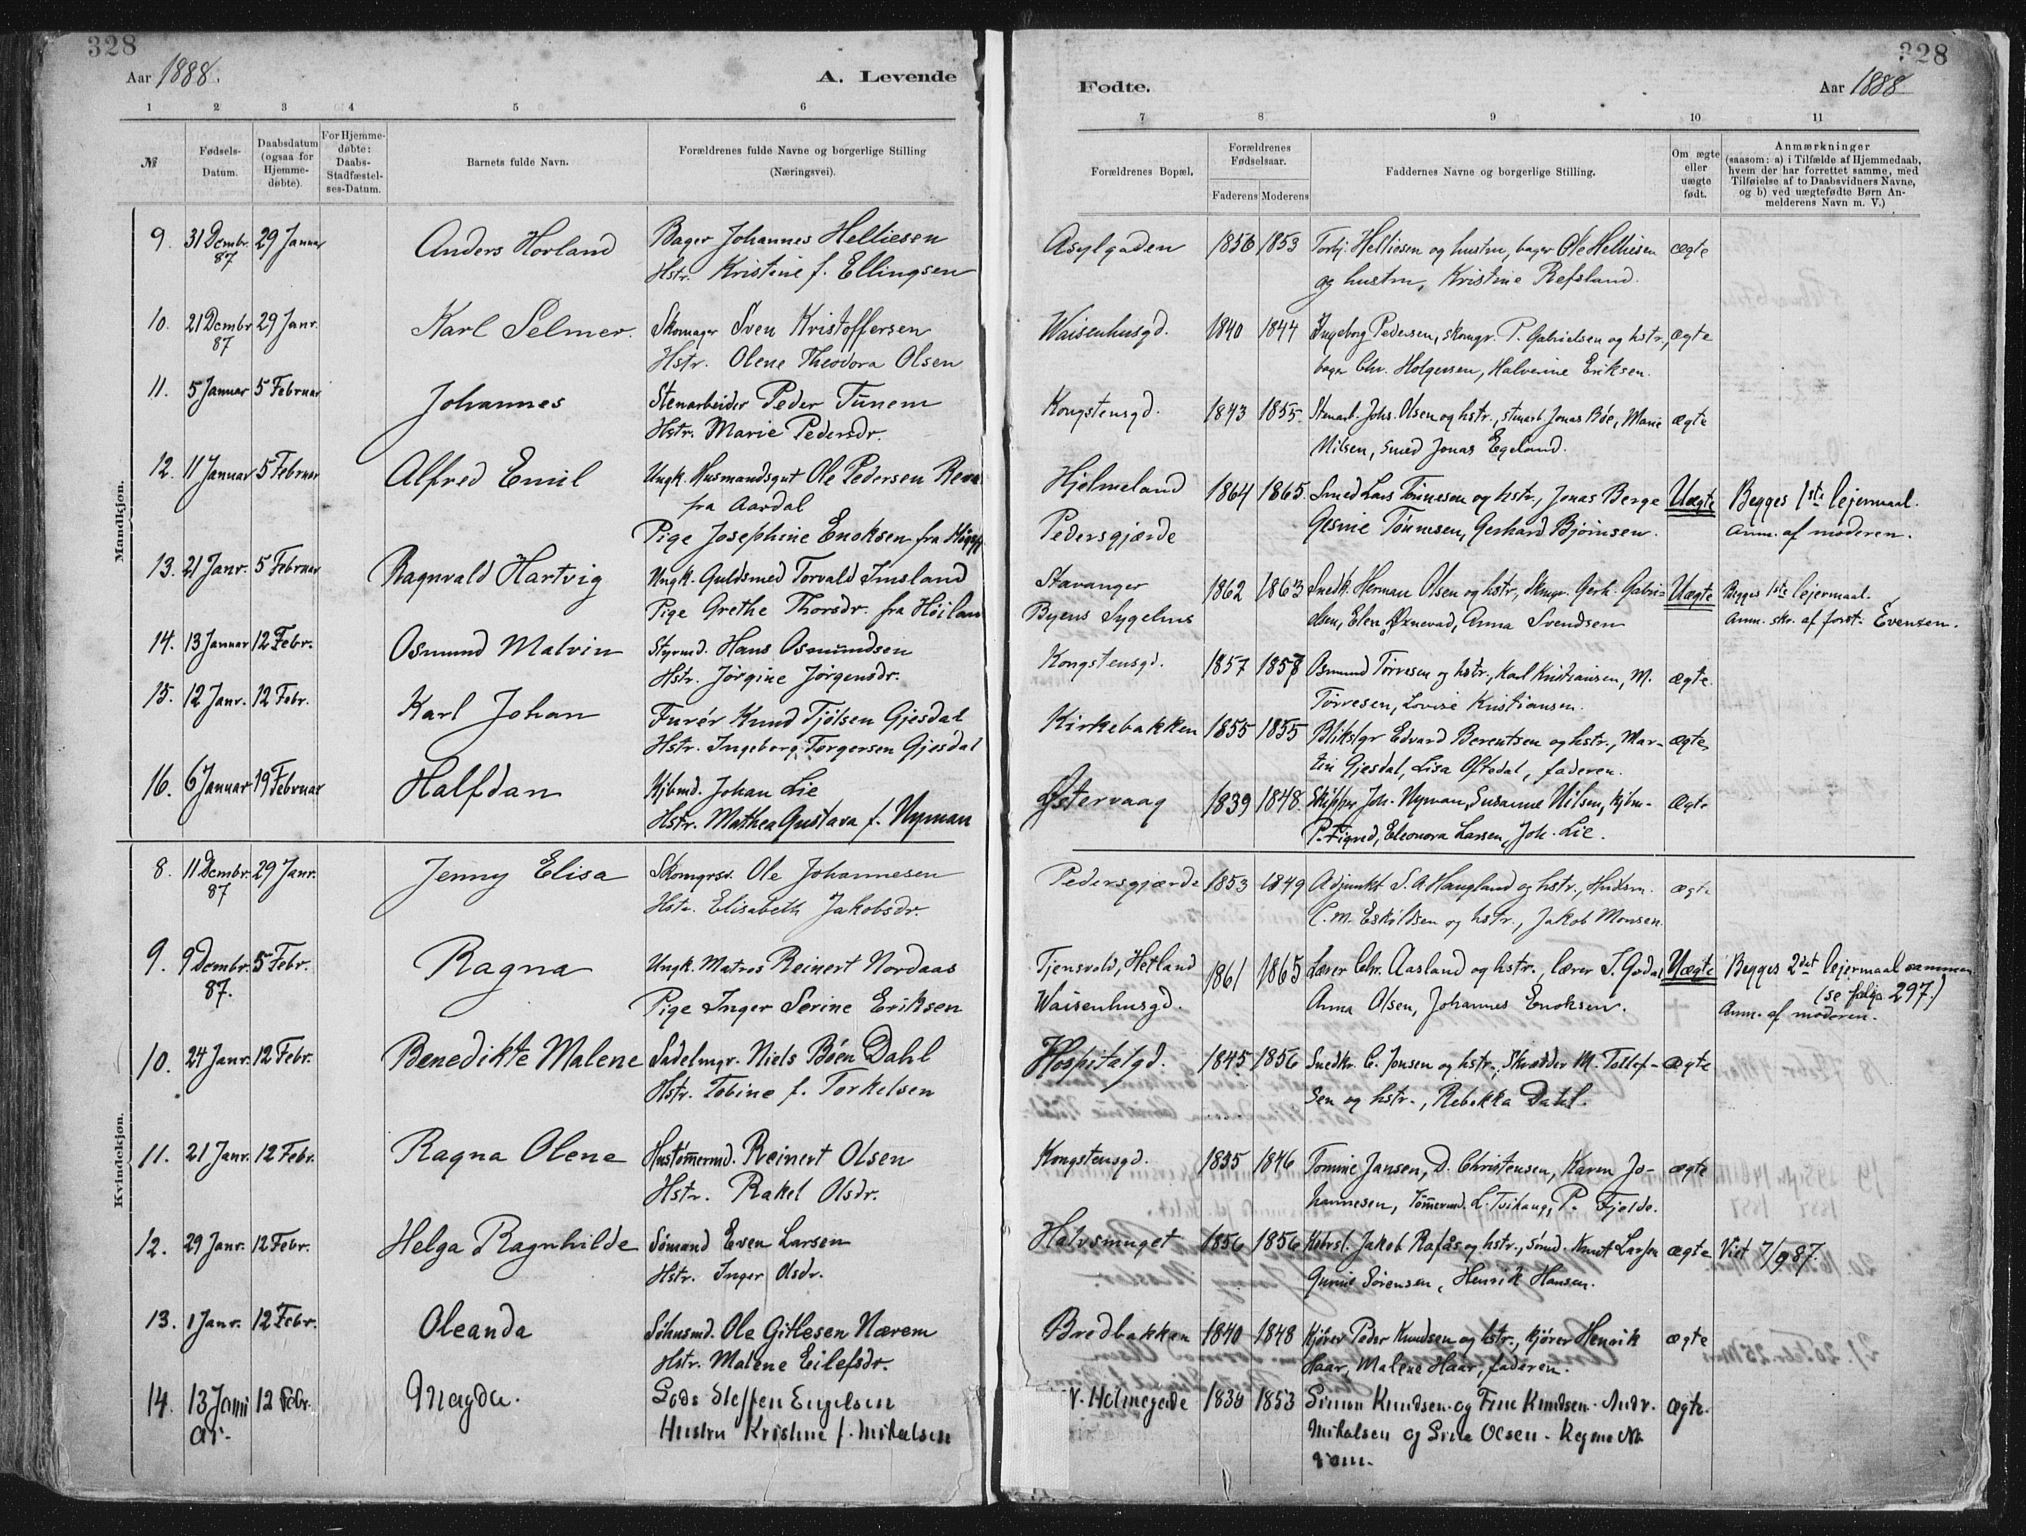 328
Aar 1888.
A. Levende
1 2 3 4 5 6
№
Fødsels-Datum.
Daabsdatum (ogsaa for Hjemme-døbte).
For Hjemme-døbte: Daabs-Stadfæstel-ses-Datum.
Barnets fulde Navn.
Forældrenes fulde Navne og borgerlige Stilling
(Næringsvei).
Mandkjøn.
9. 31 Dcmbr. 29 Januar Anders Horland Bager Johannes Helliesen
87 Hstr. Kristine f. Ellingsen
10. 21 Dcmbr 29 Janr. Karl Selmer. Skomager Sven Kristoffersen
87 Hstr. Olene Theodora Olsen
11. 5 Januar 5 Februar Johannes Stenarbeider Peder Tunem
Hstr. Marie Pedersdr.
12. 11 Januar 5 Februar Alfred Emil Ungk. Husmandsgut Ole Pedersen
fra Aardal
Pige Josephine Enoksen fra
13. 21 Janr. 5 Februar Ragnvald Hartvig Ungk. Guldsmed Torvald Imsland
Pige Grethe Thorsdr. fra Höiland
14. 13 Januar 12 Febr. Osmund Malvin Styrmd. Hans Osmundsen
Hstr. Jørgine Jørgensdr.
15. 12 Janr. 12 Febr. Karl Johan Furér Knud Tjölsen Gjesdal
Hstr. Ingeborg Torgersen Gjesdal
16. 6 Januar 19 Februar Halfdan Kjbmd. Johan Lie
Hstr. Mathea Gustava f. Nyman
Kvindekjøn.
8. 11 Dcmbr. 29 Janr. Jenny Elisa Skomgrsv. Ole Johannesen
87 Hstr. Elisabeth Jakobsdr.
9. 9 Dcmbr. 5 Febr. Ragna Ungk. Matros Reinert Nordaas
87. Pige Inger Serine Eriksen
10. 24 Janr. 12 Febr. Benedikte Malene Sadelmgr. Niels Böen Dahl
Hstr. Tobine f. Torkelsen
11. 21 Janr. 12 Febr. Ragna Olene Hustömermd. Reinert Olsen
Hstr. Rakel Olsdr.
12. 29 Janr. 12 Febr. Helga Ragnhilde Sömand Even Larsen
Hstr. Inger Olsdr.
13. 1 Janr. 12 Febr. Oleanda Söhusmd. Ole Gitlesen Nærem
Hstr. Malene Eilefsdr.
14. 13 Janu 12 Febr. Magda. Lods Steffen Engelsen
ar. Hustru Kristine f. Mikalsen
328
Fødte.
Aar 1888
7 8 9 10 11
Forældrenes Bopæl.
Forældrenes Fødselsaar.
Faderens Moderens
Faddernes Navne og borgerlige Stilling.
Om ægte eller uægte født.
Anmærkninger
(saasom: a) i Tilfælde af Hjemmedaab,
hvem der har forrettet samme, med
Tilføielse af to Daabsvidners Navne,
og b) ved uægtefødte Børn An-
melderens Navn m. V.)
Asylgaden 1856 1853 Torbj. Helliesen og hustru, bager Ole Helliesen ægte
og hustru, Kristine Refsland.
Waisenhusgd. 1840 1844 Ingeborg Pedersen, skomgr. P. Gabrielsen og hstr., ægte
bager Chr. Holgersen, Halverine Eriksen.
Kongstensgd. 1843 1855. Stenarb. Johs. Olsen og hstr., stenarb. Jonas Böe, Marie ægte
Nilsen, smed Jonas Egeland.
Hjelmeland 1864 1865. Smed Lars Tönnesen og hstr., Jonas Berge Uægte Begges 1ste lejermaal.
Pedersgjærde Gesine Tönnesen, Gerhard Bjørnsen. Anm. af moderen.
Stavanger 1862 1863 Snedk. Herman Olsen og hstr., Skmgr. Gerh. Gabri- Uægte Begges 1ste lejermaal.
Byens Sygehus elsen, Elen Oznevad, Anna Svendsen Anm. skr. af forst. Evensen.
Kongstensgd. 1857 1857 Osmund Törresen og hstr., Karl Kristiansen, M. ægte.
Törresen, Lovise Kristiansen.
Kirkebakken 1855 1855 Blikslgr Edvard Berentsen og hstr., Mar- ægte
tin Gjesdal, Lisa Oftedal, faderen.
Østervaag 1839 1848. Skipper Joh. Nyman, Susanne Nilsen, kjbm. ægte
P. Figved, Eleonora Larsen, Joh. Lie.
Pedersgjærde 1853 1849 Adjunkt S. A. Haugland og hstr., ægte
C. M. Eskildsen og hstr., Jakob Monsen
Tjensvold, Hetland 1861 1865 Lærer Chr. Aasland og hstr., lærer T. Godal Uægte Begges 2det lejermaal sammen
Waisenhusgd. Anna Olsen, Johannes Enoksen. (se følge 297.)
Anm. af moderen.
Hospitalgd. 1845 1856 Snedkr. C. Jonsen og hstr., Skrædder M. Tollef- ægte
sen og hstr., Rebekka Dahl.
Kongstensgd. 1835 1846 Tomine Jansen, D. Christensen, Karen Jo- ægte
hannesen, Tömermd. L. Tvihaug, P. Fjelde.
Halvsmuget 1856 1856 Jakob Rafås og hstr., sömd. Knut Larsen ægte Viet 7/9 87.
Gurine Sörensen, Henrik Hansen.
Bredbakken 1840 1848 Kjører Peder Knudsen og hstr., kjører Henrik ægte
Haar, Malene Haar, faderen.
V. Holmegade 1836 1853 Simon Knudsen og Fine Knudsen. Andr. ægte.
Mikalsen og Sine Olsen.